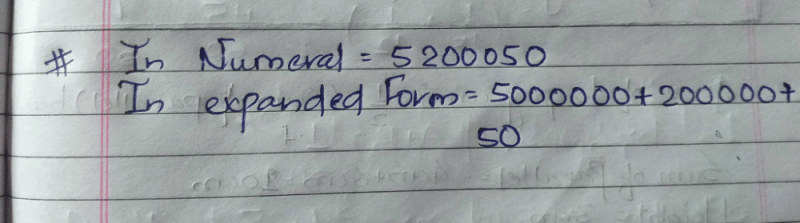 # In Numeral = 5200050
In expanded Form = 5000000+200000+
50